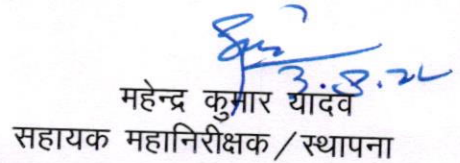 3.8.22
महेन्द्र कुमार यादव
सहायक महानिरीक्षक / स्थापना